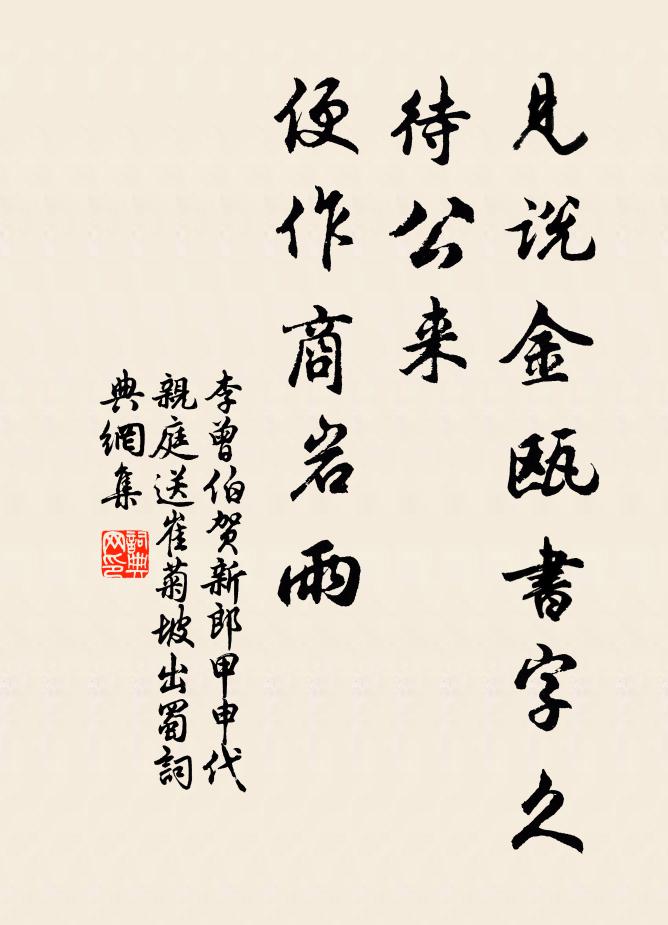 見说金瓯書字久
待公来
便作商岩雨
李曾伯贺新郎甲申代
親庭送崔菊坡出蜀詞
典網集
詞典
网印